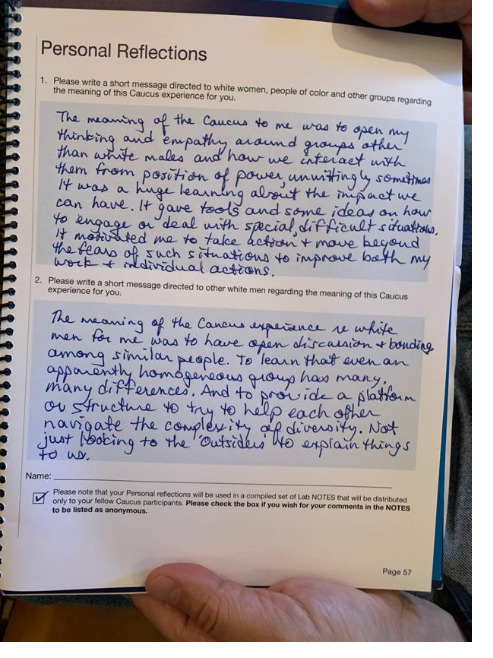 Personal Reflections
1. Please write a short message directed to white women, people of color and other groups regarding
the meaning of this Caucus experience for you.
The meaning of the Caucus to me was to open my
thinking and empathy around groups other
than white males and how we interact with
them from position of power, unwittingly sometimes
It was a huge learning about the impact we
can have. It gave tools and some ideas on how
to engage or deal with special, difficult situations.
It motivated me to take action + move beyond
the fears of such situations to improve both my
work + individual actions.
2. Please write a short message directed to other white men regarding the meaning of this Caucus
experience for you.
The meaning of the Caucus experience re white
men for me was to have open discussion + bonding
among similar people. To learn that even an
apparently homogeneous group has many,
many differences. And to provide a platform
or structure to try to help each other
navigate the complexity of diversity. Not
just looking to the 'Outsiders' to explain things
to us.
Name:
Please note that your Personal reflections will be used in a compiled set of Lab NOTES that will be distributed
only to your fellow Caucus participants. Please check the box if you wish for your comments in the NOTES
to be listed as anonymous.
Page 57